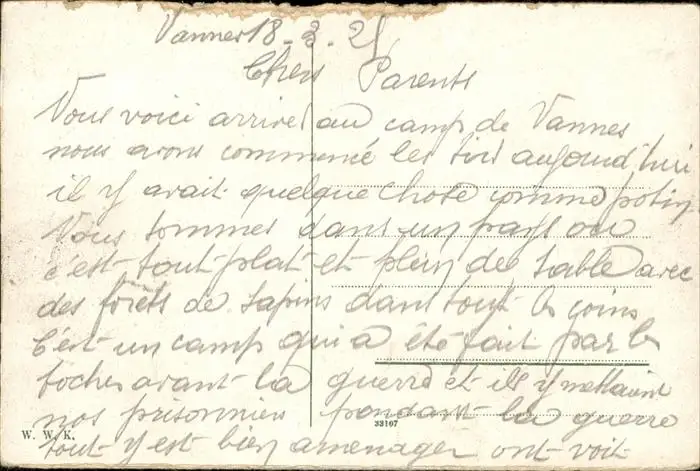 Vannes 18-3.21
Chers Parents
Nous voici arrivés au camp de Vannes
nous avons commencé les tirs aujourd'hui
il y avait quelque chose comme potin
Nous sommes dans un pays ou
c'est tout plat et plein de sable avec
des forêts de sapins dans tout les coins
C'est un camp qui a été fait par les
boches avant la guerre et ils y mettaient
nos prisonniers pendant la guerre
W. W. K.
33107
tout y est bien aménager ont voit